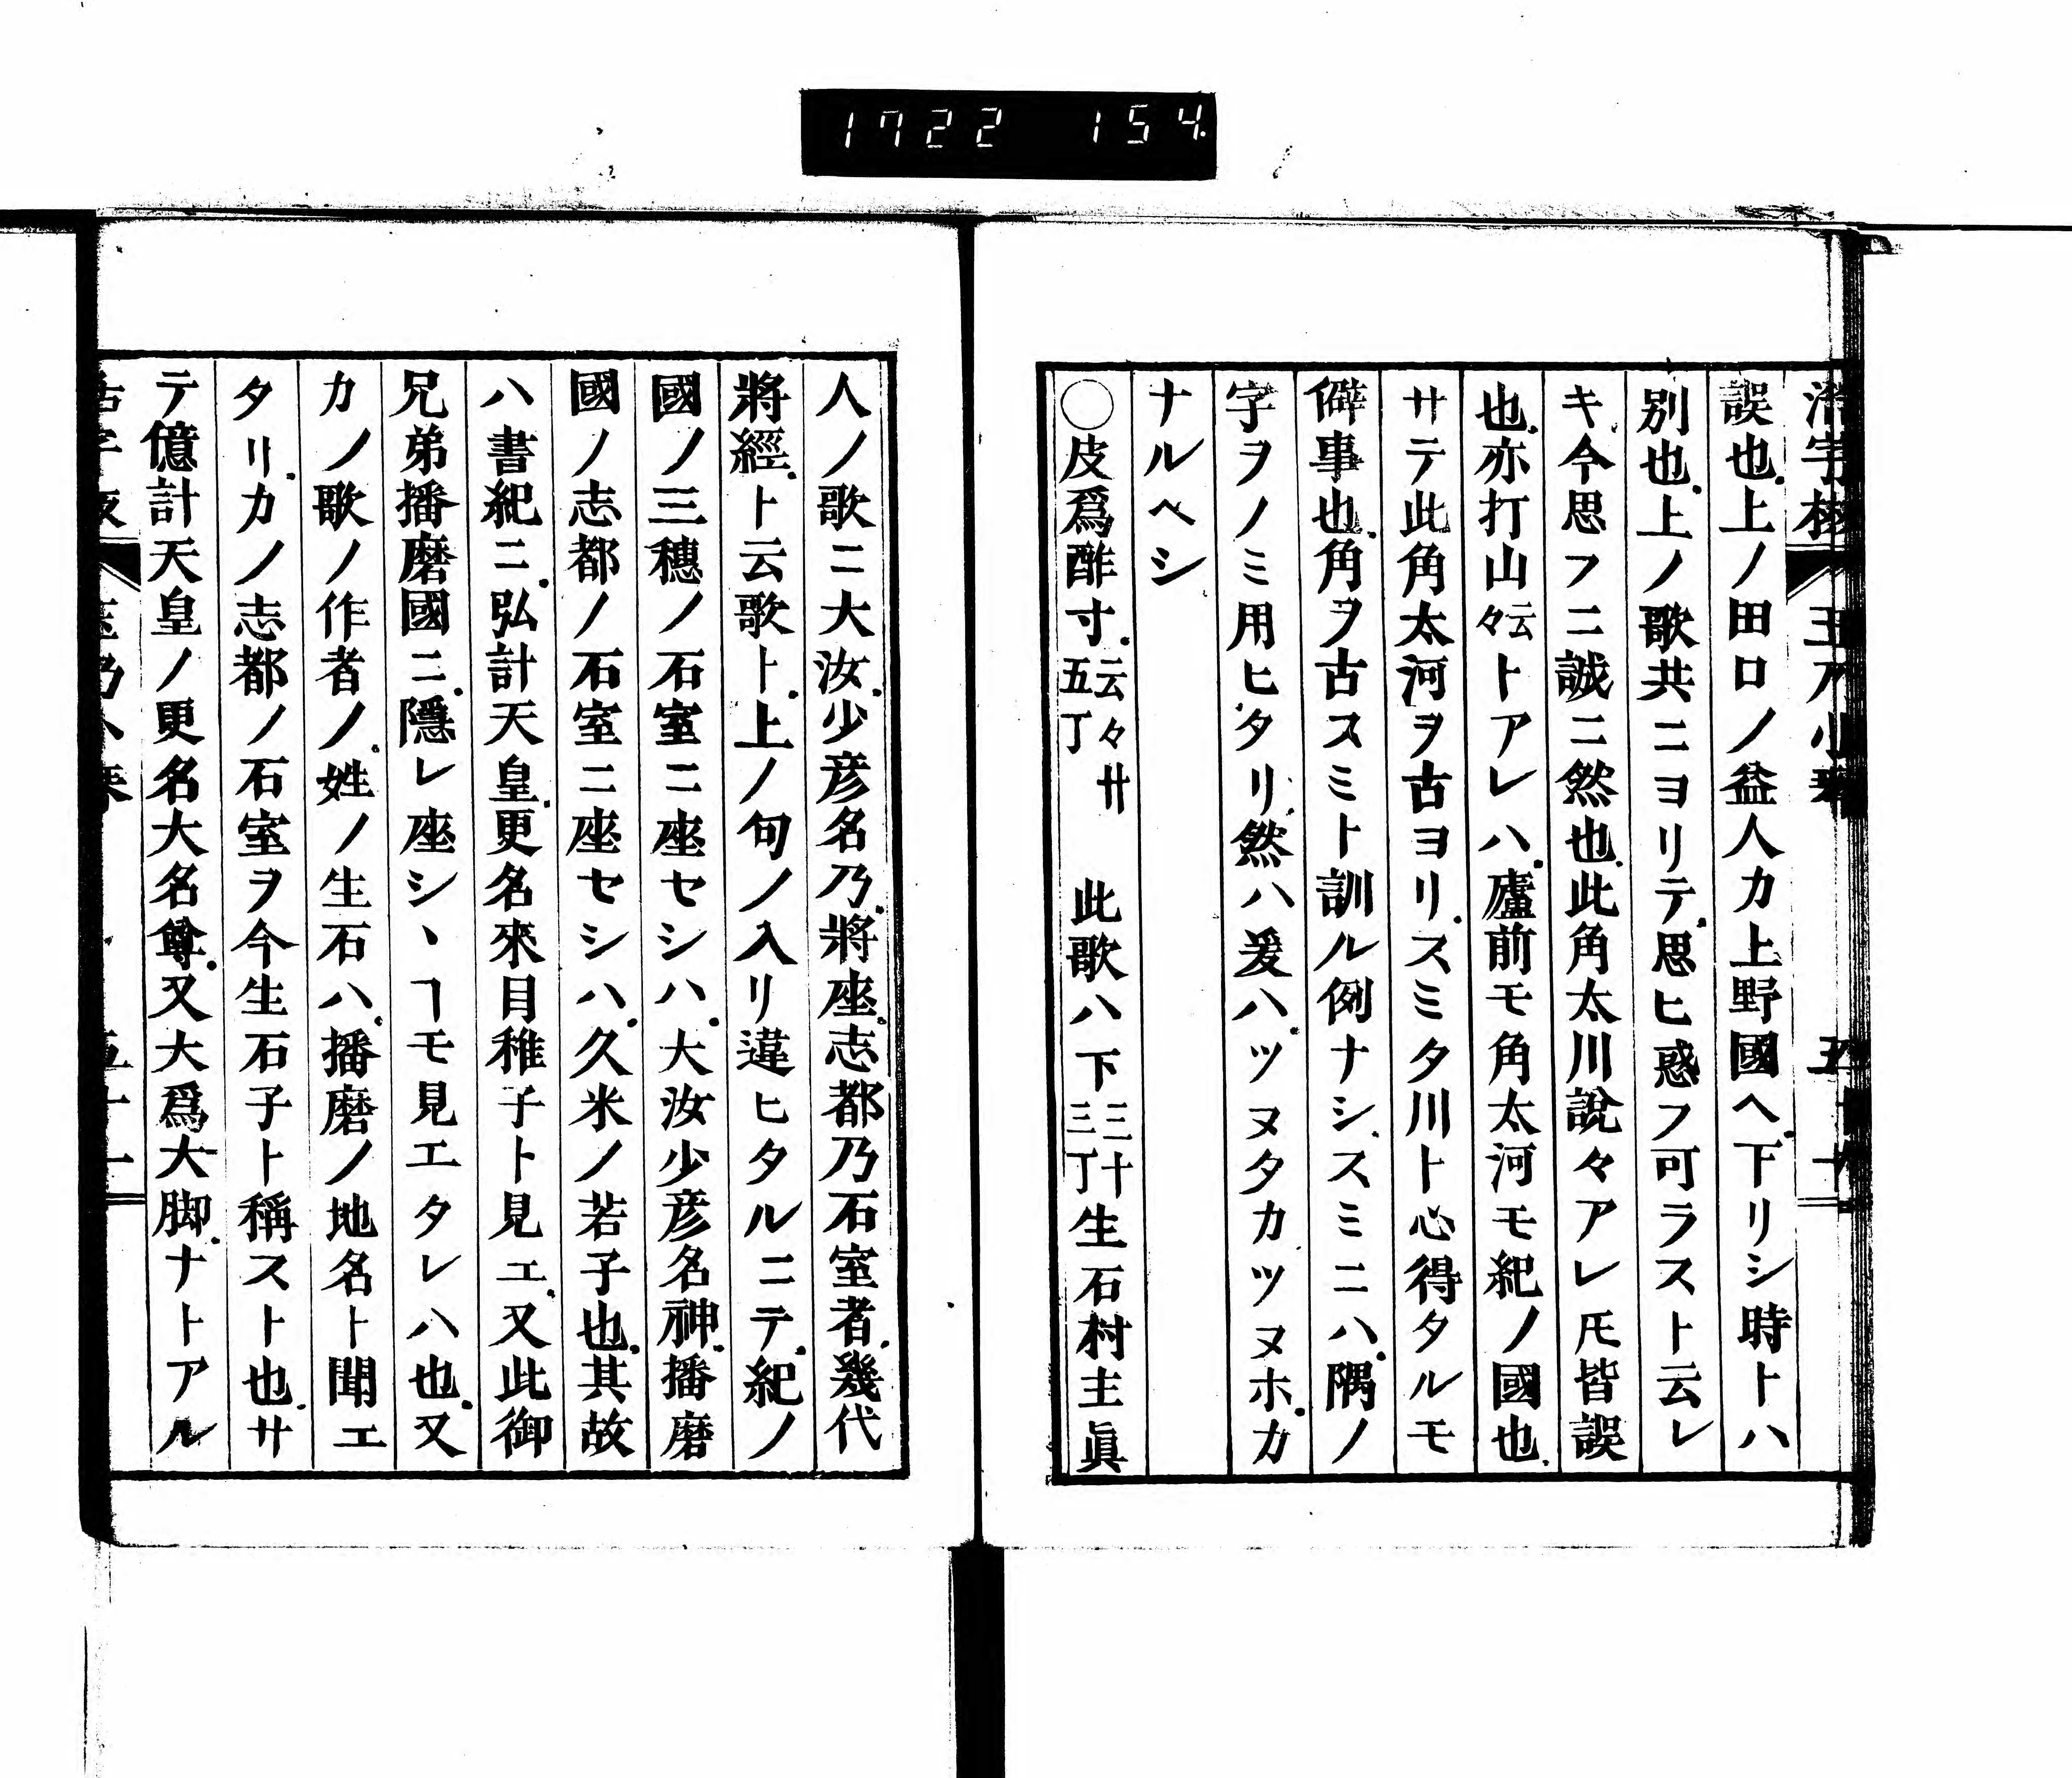 1722 154
誤也。上ノ田口ノ益人カ上野國ヘ。下リシ時トハ
別也。上ノ歌共ニヨリテ。思ヒ惑フ可ラスト云レ
キ今思フニ誠ニ然也。此角太川說々アレ𪜈皆誤
也。亦打山云々トアレハ。廬前モ角太河モ紀ノ國也。
サテ此角太河ヲ古ヨリ。スミタ川ト心得タルモ
僻事也。角ヲ古スミト訓ル例ナシ。スミニハ。隅ノ
字ヲノミ用ヒタリ。然ハ爰ハ。ツヌタカツヌホ。カ
ナルヘシ
○皮爲酢寸。云々廿五丁 此歌ハ下三十三丁生石村主眞
人ノ歌ニ大汝。少彦名乃。將座。志都乃石室者。幾代
將經。ト云歌ト。上ノ句ノ入リ違ヒタルニテ。紀ノ
國ノ三穗ノ石室ニ座セシハ。大汝少彦名神。播磨
國ノ志都ノ石室ニ座セシハ。久米ノ若子也。其故
ハ書紀ニ。弘計天皇。更名來目稚子ト見エ。又此御
兄弟播磨國ニ。隱レ座シヽヿモ見エタレハ也。又
カノ歌ノ作者ノ。姓ノ生石ハ。播磨ノ地名ト聞エ
タリ。カノ志都ノ石室ヲ今生石子ト稱スト也。サ
テ億計天皇ノ更名大名尊。又大爲大脚。ナトアル